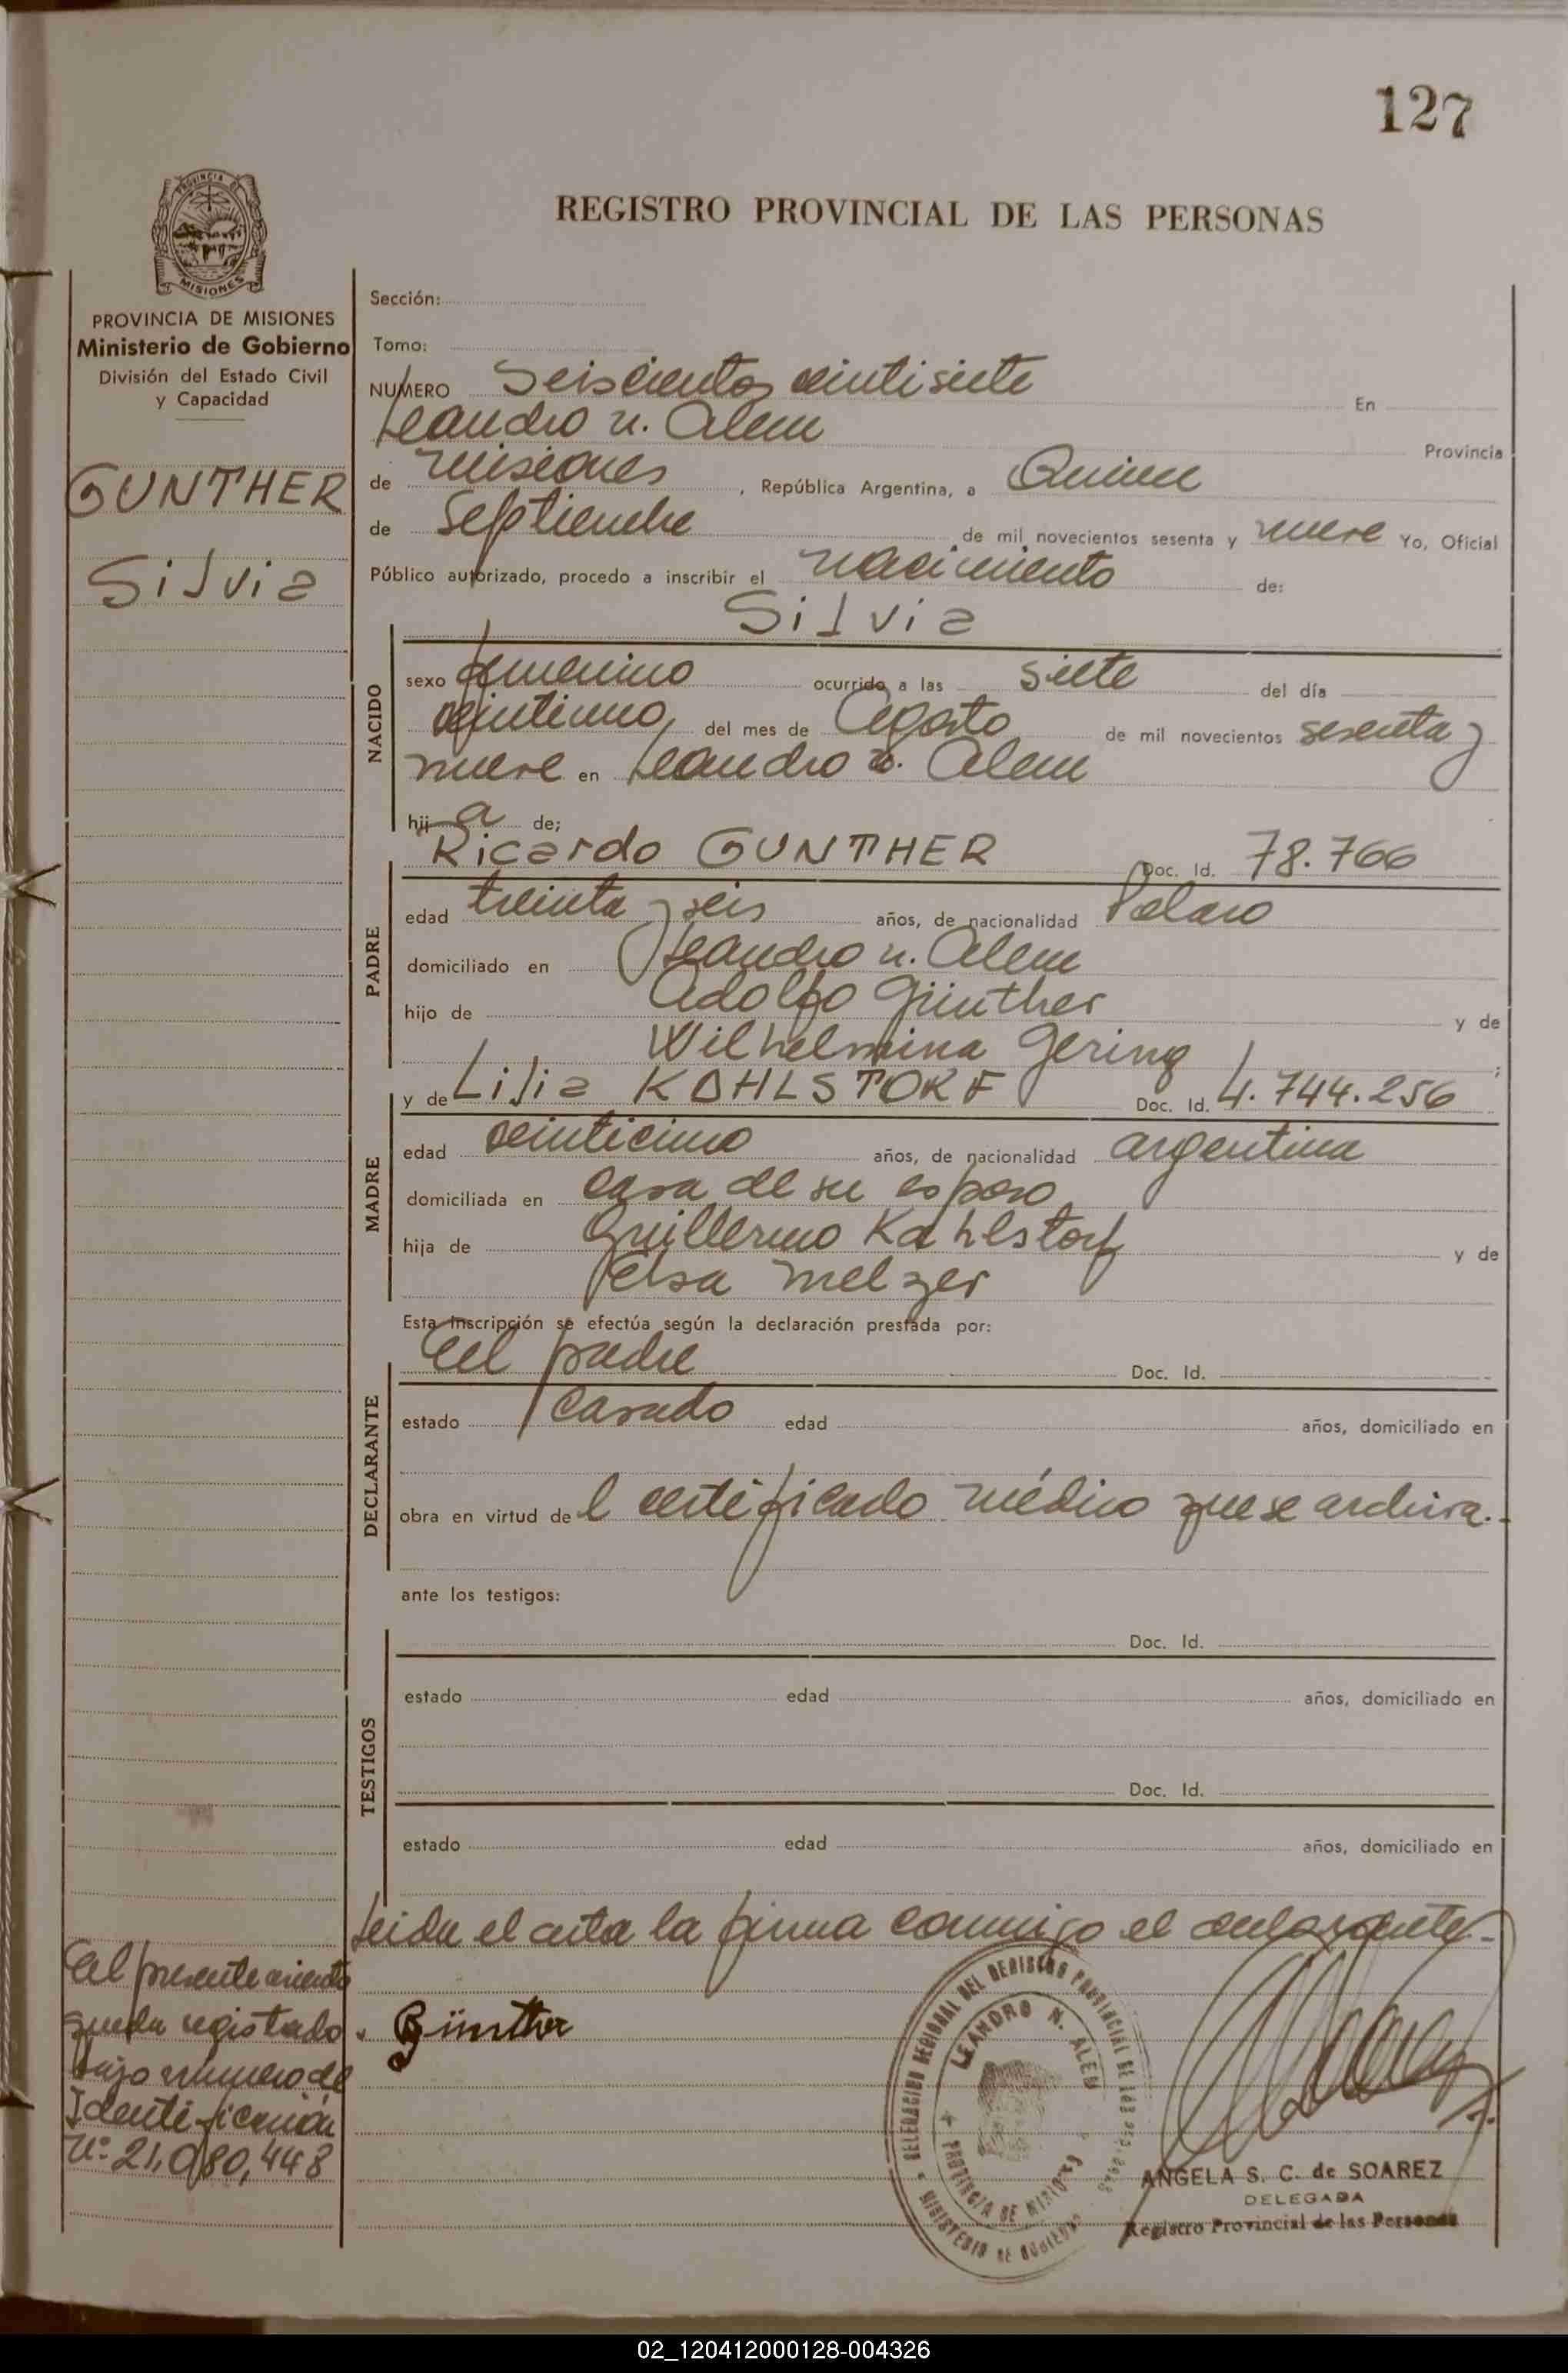 127
PROVINCIA DE
MISIONES
REGISTRO PROVINCIAL DE LAS PERSONAS
PROVINCIA DE MISIONES
Ministerio de Gobierno
División del Estado Civil
y Capacidad
GUNTHER
Silvia
Sección:
Tomo:
NUMERO Seiscientos veintisiete En
Leandro N. Alem Provincia
de Misiones, República Argentina, a Quince
de Septiembre de mil novecientos sesenta y nueve Yo, Oficial
Público autorizado, procedo a inscribir el nacimiento de:
Silvia
NACIDO
sexo femenino ocurrido a las siete del día
veintiuno, del mes de Agosto de mil novecientos sesenta y
nueve en Leandro N. Alem
hija de;
PADRE
Ricardo GUNTHER Doc. Id. 78.766
edad treinta y seis años, de nacionalidad Polaco
domiciliado en Leandro N. Alem
hijo de Adolfo Günther y de
Wilhelmina Gering;
MADRE
y de Lilia KAHLSTORF Doc. Id. 4.744.256
edad veinticinco años, de nacionalidad argentina
domiciliada en casa de su esposo
hija de Guillermo Kahlstorf y de
Elsa Melzer
Esta inscripción se efectúa según la declaración prestada por:
DECLARANTE
El padre Doc. Id.
estado casado edad años, domiciliado en
obra en virtud del certificado médico que se archiva.-
ante los testigos:
TESTIGOS
Doc. Id.
estado edad años, domiciliado en
Doc. Id.
estado edad años, domiciliado en
Leida el acta la firma conmigo el declarante.-
El presente asiento
queda registado
bajo número de
Identificación
Nº 21,080,448
Günther
DELEGACION REGIONAL DEL REGISTRO PROVINCIAL DE LAS PERSONAS
LEANDRO N. ALEM
PROVINCIA DE MISIONES
MINISTERIO DE GOBIERNO
ANGELA S. C. de SOAREZ
DELEGADA
Registro Provincial de las Personas
02_120412000128-004326